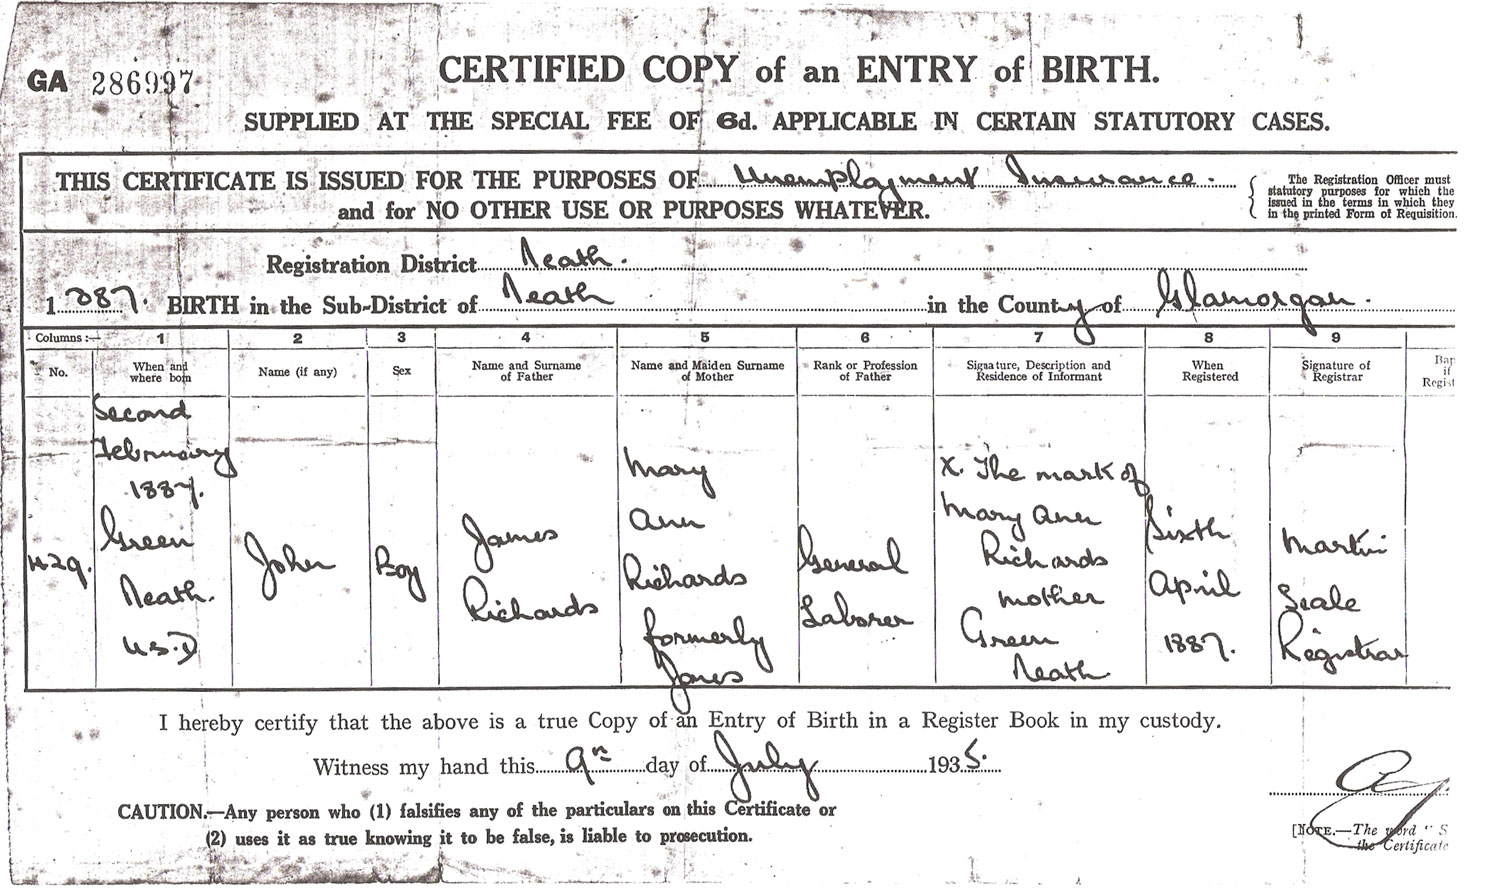 GA 286997
CERTIFIED COPY of an ENTRY of BIRTH.
SUPPLIED AT THE SPECIAL FEE OF 6d. APPLICABLE IN CERTAIN STATUTORY CASES.
THIS CERTIFICATE IS ISSUED FOR THE PURPOSES OF Unemployment Insurance.
and for NO OTHER USE OR PURPOSES WHATEVER.
The Registration Officer must
statutory purposes for which the
issued in the terms in which they
in the printed Form of Requisition.
Registration District Neath.
1887. BIRTH in the Sub-District of Neath in the County of Glamorgan.
Columns :— 1 2 3 4 5 6 7 8 9
No.
When and
where born
Name (if any)
Sex
Name and Surname
of Father
Name and Maiden Surname
of Mother
Rank or Profession
of Father
Signature, Description and
Residence of Informant
When
Registered
Signature of
Registrar
Bap
if
Regist
429.
Second
February
1887.
Green
Neath.
U.S.D
John
Boy
James
Richards
Mary
Ann
Richards
formerly
Jones
General
Laborer
X. The mark of
Mary Ann
Richards
mother
Green
Neath
Sixth
April
1887.
Martin
Seale
Registrar
I hereby certify that the above is a true Copy of an Entry of Birth in a Register Book in my custody.
Witness my hand this 9th day of July 1935.
CAUTION.—Any person who (1) falsifies any of the particulars on this Certificate or
(2) uses it as true knowing it to be false, is liable to prosecution.
[NOTE.—The word "S
the Certificate